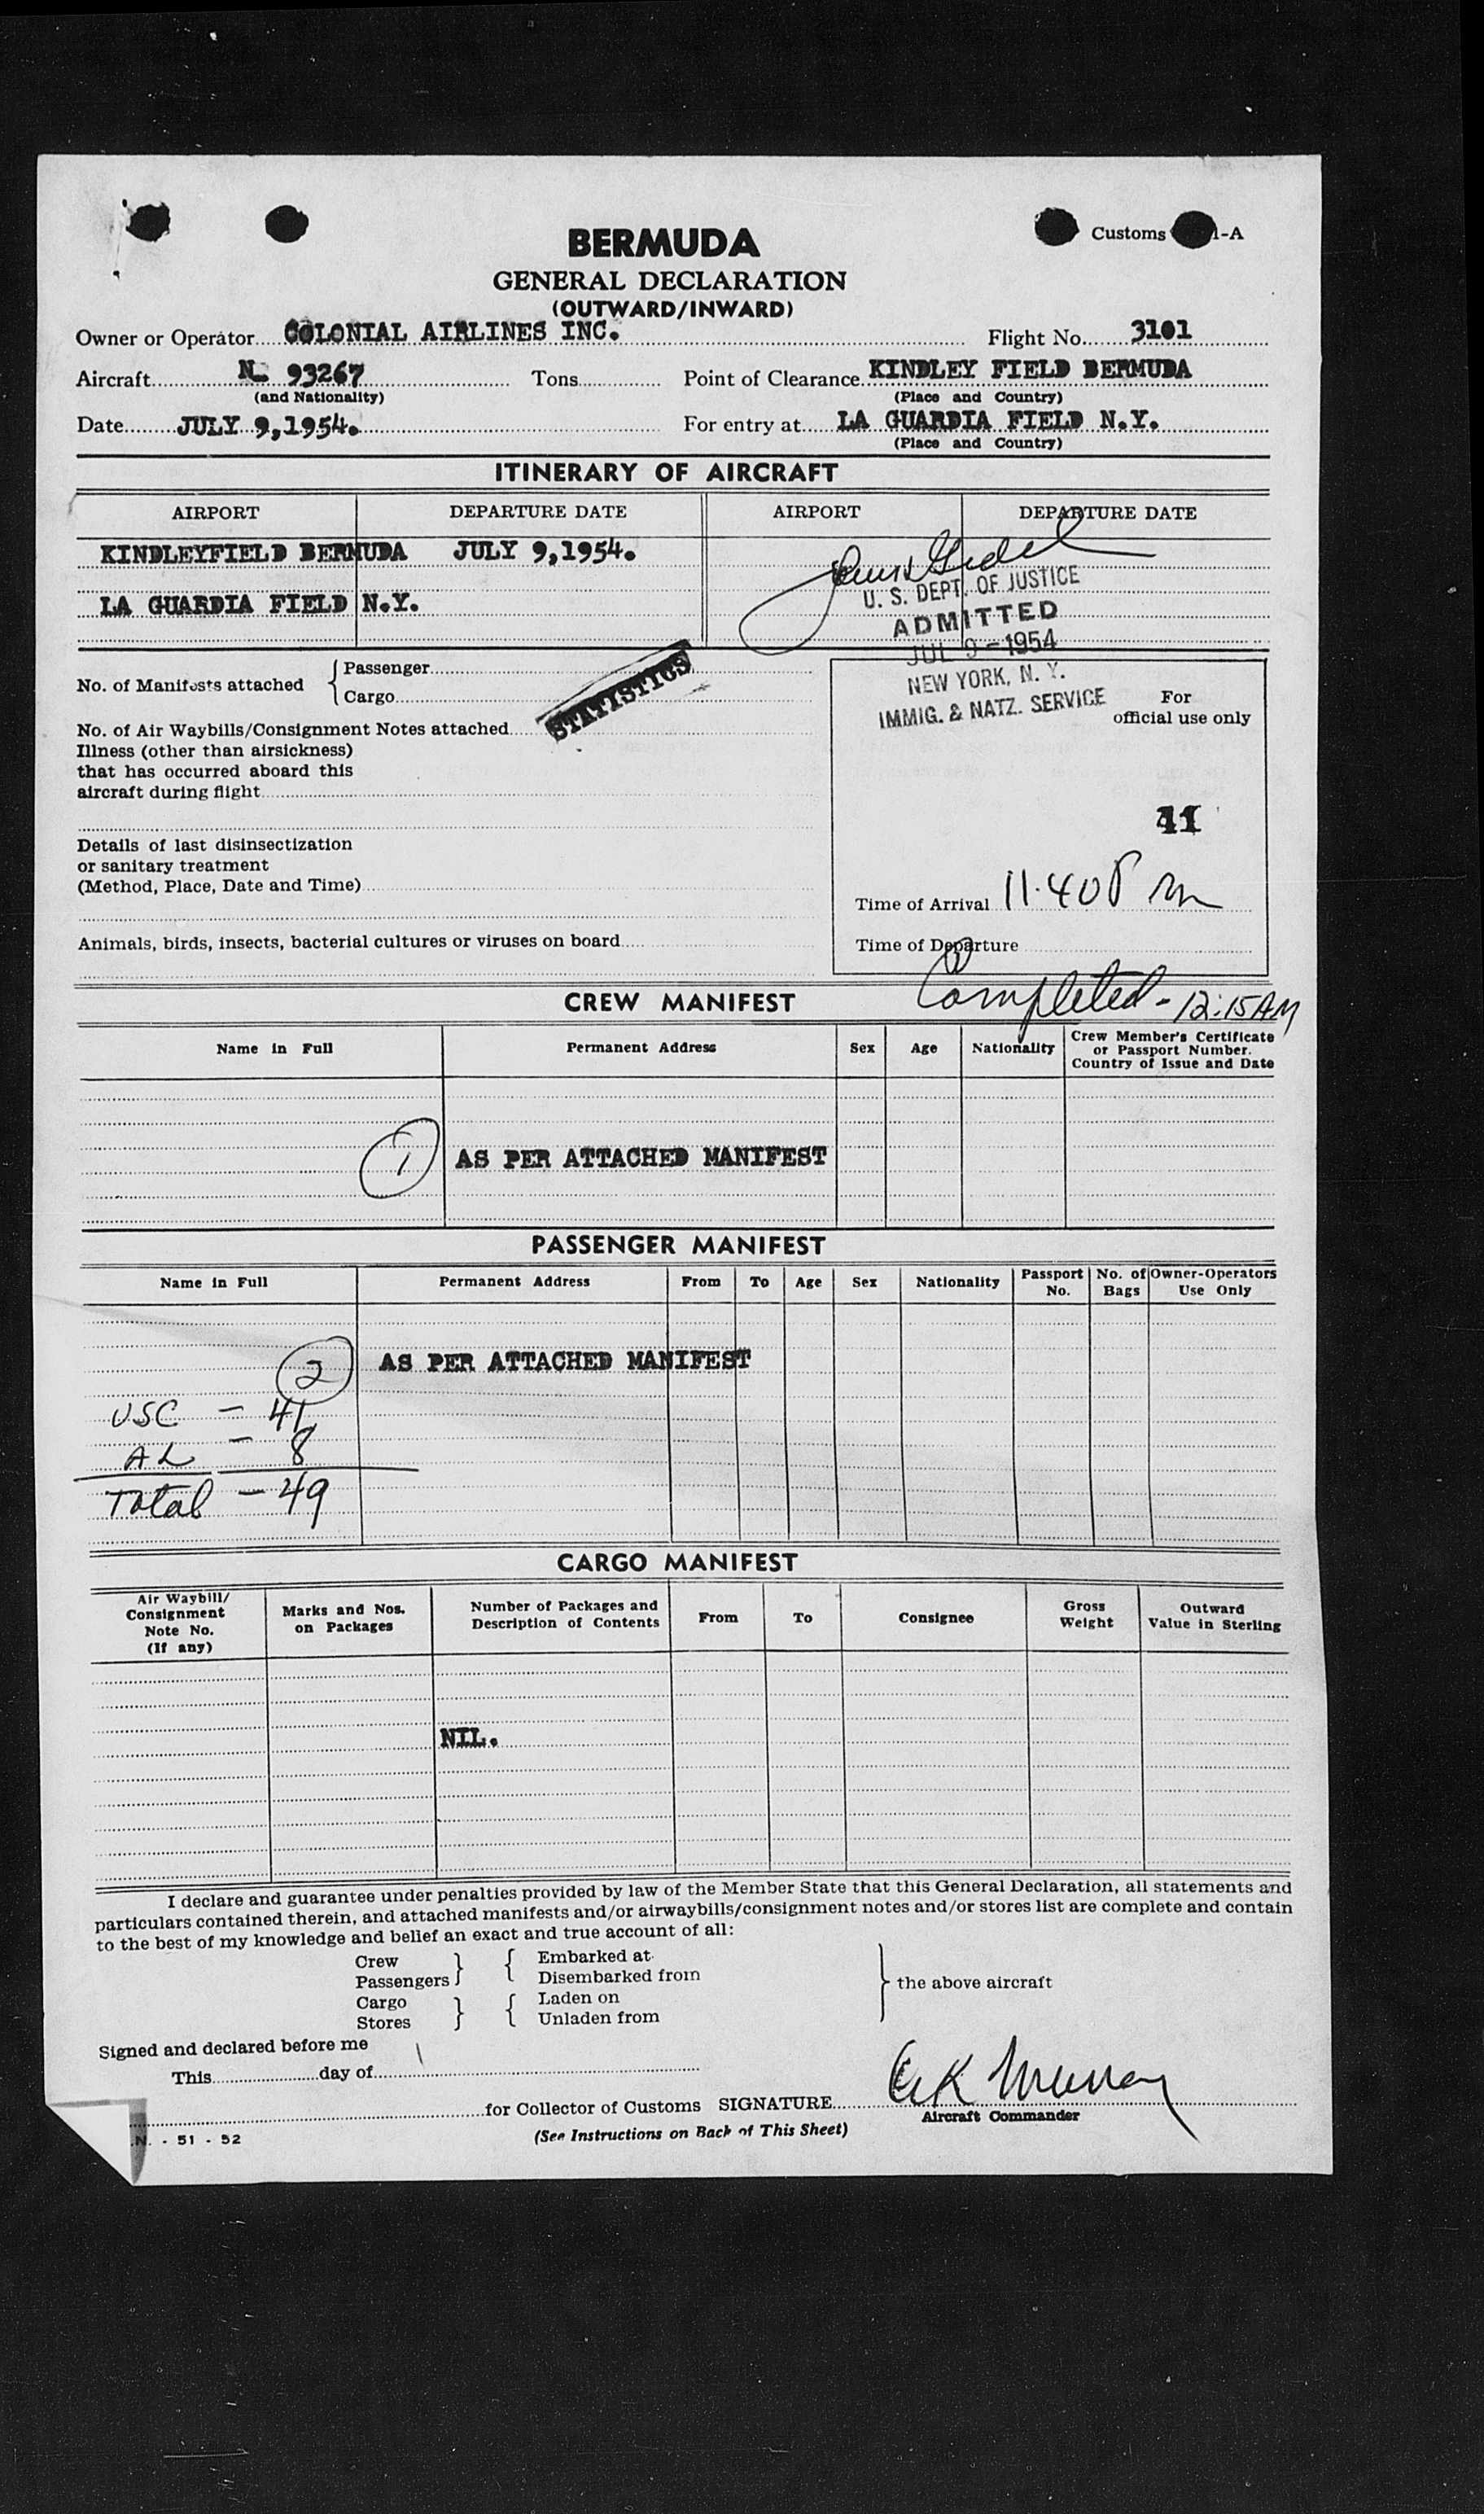 BERMUDA
Customs 1-A
GENERAL DECLARATION
(OUTWARD/INWARD)
Owner or Operator COLONIAL AIRLINES INC. Flight No. 3101
Aircraft N. 93267 Tons Point of Clearance KINDLEY FIELD BERMUDA
(and Nationality) (Place and Country)
Date JULY 9,1954. For entry at LA GUARDIA FIELD N.Y.
(Place and Country)
ITINERARY OF AIRCRAFT
AIRPORT DEPARTURE DATE AIRPORT DEPARTURE DATE
KINDLEYFIELD BERMUDA JULY 9,1954.
LA GUARDIA FIELD N.Y.
U. S. DEPT. OF JUSTICE
ADMITTED
JUL 9-1954
NEW YORK, N. Y.
IMMIG. & NATZ. SERVICE
No. of Manifests attached { Passenger
Cargo
STATISTICS
No. of Air Waybills/Consignment Notes attached
Illness (other than airsickness)
that has occurred aboard this
aircraft during flight
Details of last disinsectization
or sanitary treatment
(Method, Place, Date and Time)
Animals, birds, insects, bacterial cultures or viruses on board
For
official use only
41
Time of Arrival 11.40 P m
Time of Departure
Completed - 12:15 AM
CREW MANIFEST
Name in Full Permanent Address Sex Age Nationality Crew Member's Certificate
or Passport Number.
Country of Issue and Date
1 AS PER ATTACHED MANIFEST
PASSENGER MANIFEST
Name in Full Permanent Address From To Age Sex Nationality Passport No. No. of Bags Owner-Operators Use Only
2 AS PER ATTACHED MANIFEST
USC - 41
AL - 8
Total - 49
CARGO MANIFEST
Air Waybill/
Consignment
Note No.
(If any)
Marks and Nos.
on Packages
Number of Packages and
Description of Contents
From To Consignee
Gross
Weight
Outward
Value in Sterling
NIL.
I declare and guarantee under penalties provided by law of the Member State that this General Declaration, all statements and
particulars contained therein, and attached manifests and/or airwaybills/consignment notes and/or stores list are complete and contain
to the best of my knowledge and belief an exact and true account of all:
Crew } { Embarked at
Passengers Disembarked from } the above aircraft
Cargo } { Laden on
Stores Unladen from
Signed and declared before me
This day of
for Collector of Customs SIGNATURE
Aircraft Commander
(See Instructions on Back of This Sheet)
N. - 51 - 52